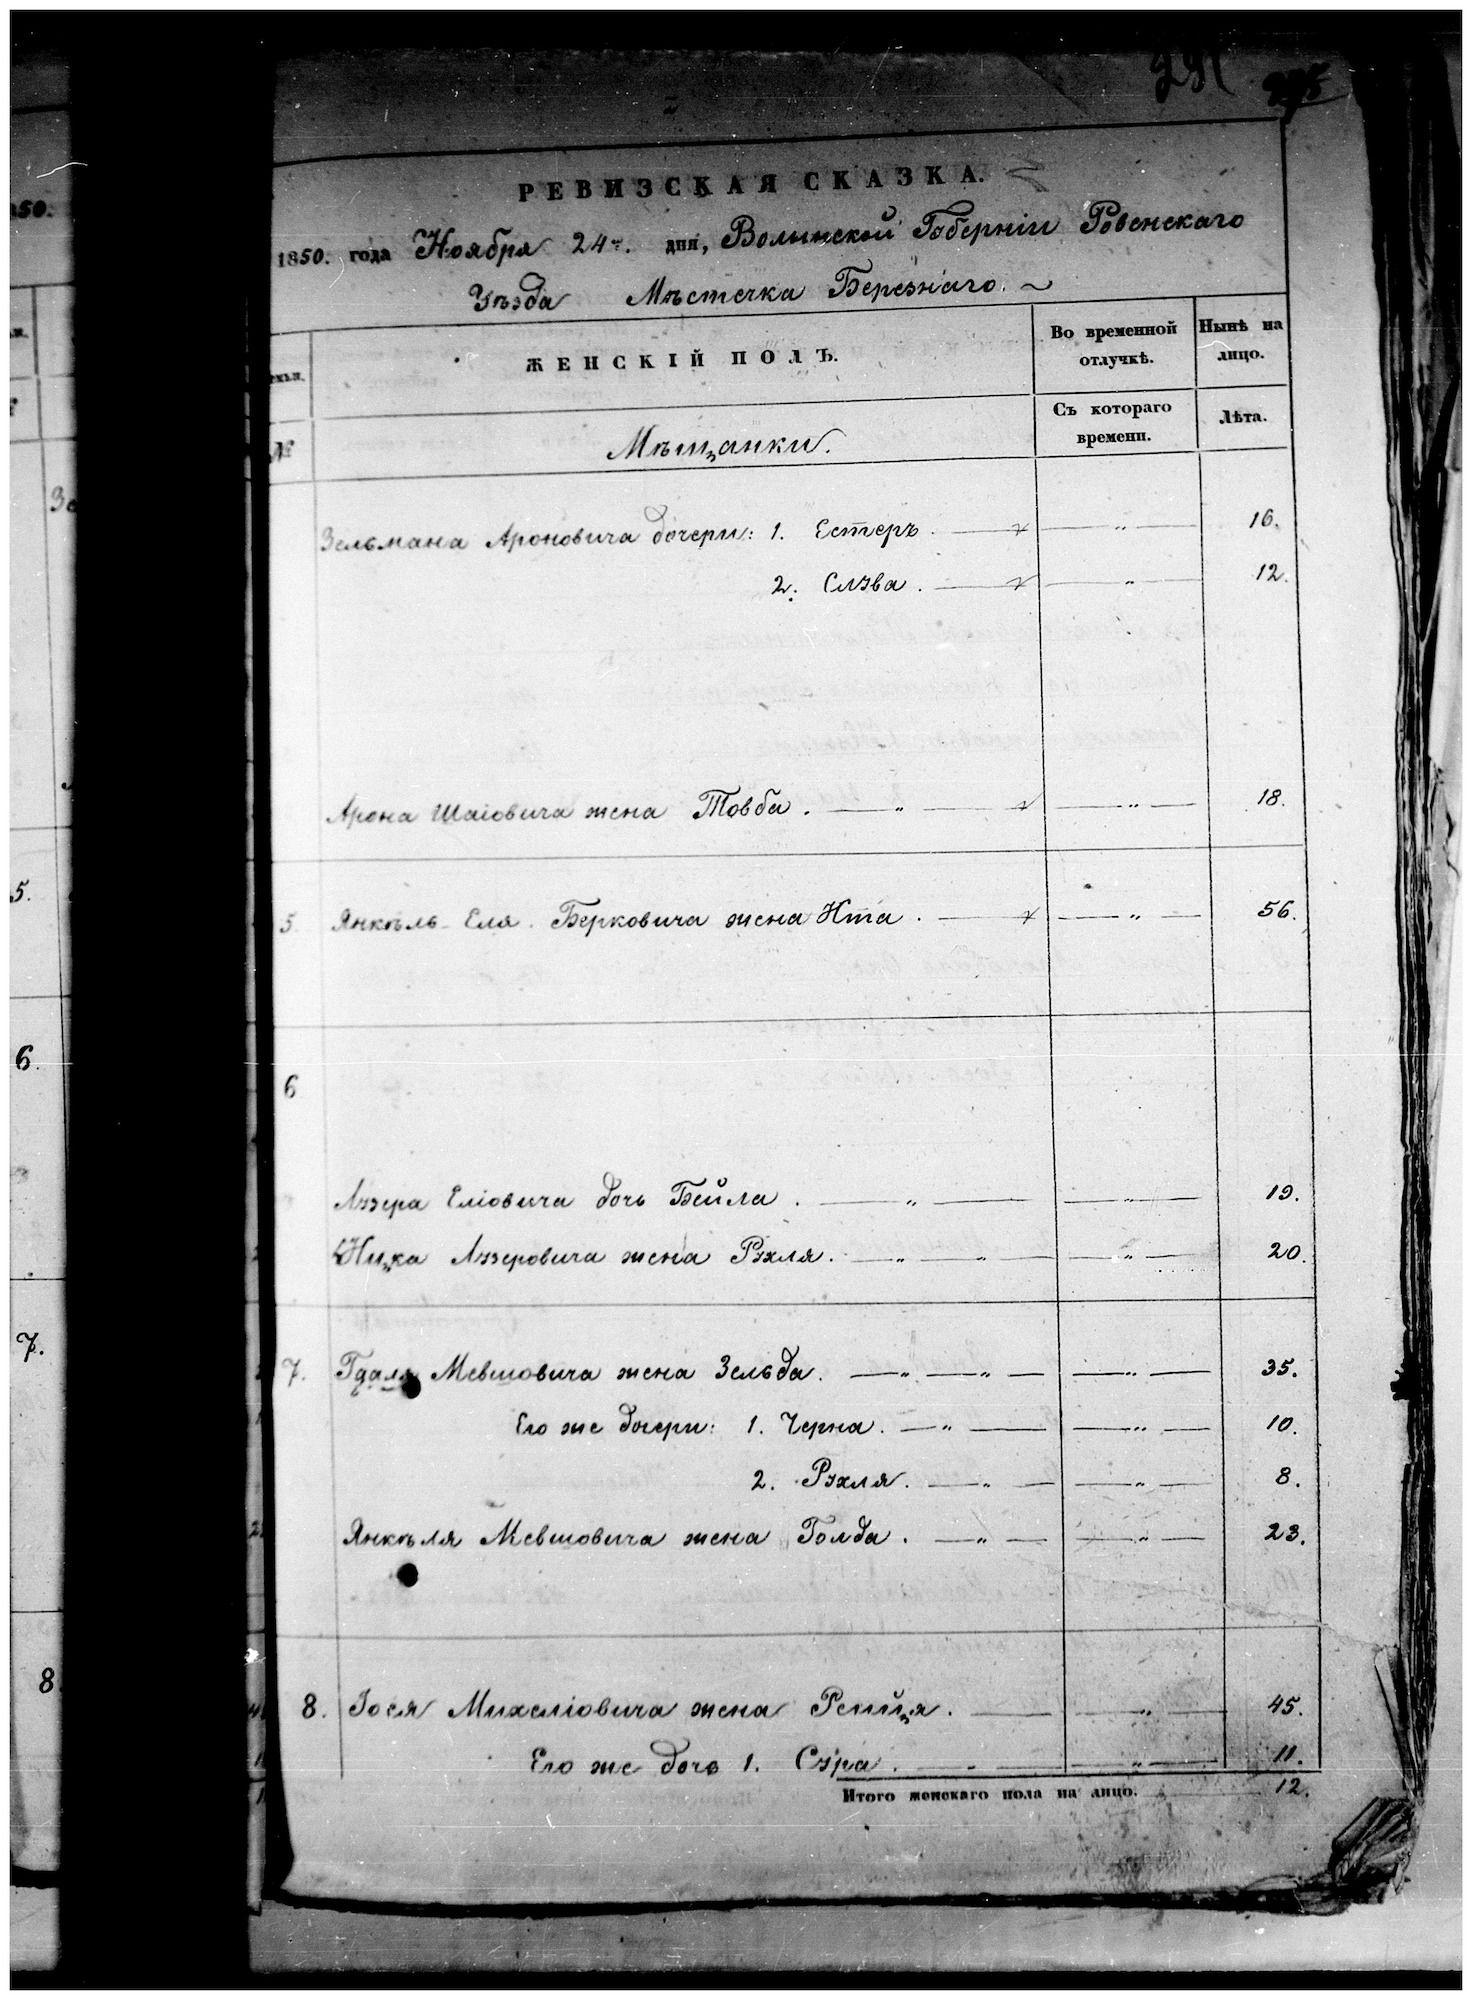 291
50.
РЕВИЗСКАЯ СКАЗКА.
1850. года Ноября 24го. дня, Волынской Губерніи Ровенскаго
Уѣзда Мѣстечка Березнаго.
ЖЕНСКІЙ ПОЛЪ.
Во временной отлучкѣ.
Нынѣ на лицо.
№
Мѣщанки.
Съ котораго времени.
Лѣта.
Зельмана Ароновича дочери: 1. Естеръ. — „ — 16.
2. Слува. — „ — 12.
Арона Шаіовича жена Товба. — „ — — „ — 18.
5. Янкѣль Еля. Берковича жена Ита. — — „ — 56.
6
Лэзера Еліовича дочь Бейла. — „ — — „ — 19.
Ицка Лэзеровича жена Рэхля. — „ — „ — — „ — 20.
7. Гдаля Мевшовича жена Зельда. — „ — „ — — „ — 35.
Его же дочери: 1. Черна. — „ — — „ — 10.
2. Рэхля. — „ — — „ — 8.
Янкѣля Мевшовича жена Голда. — „ — — „ — 23.
8. Іося Михеліовича жена Рейця. — — „ — 45.
Его же дочь 1. Сэра. — „ — — „ — 11.
Итого женскаго пола на лицо. 12.
5.
6.
7.
8.